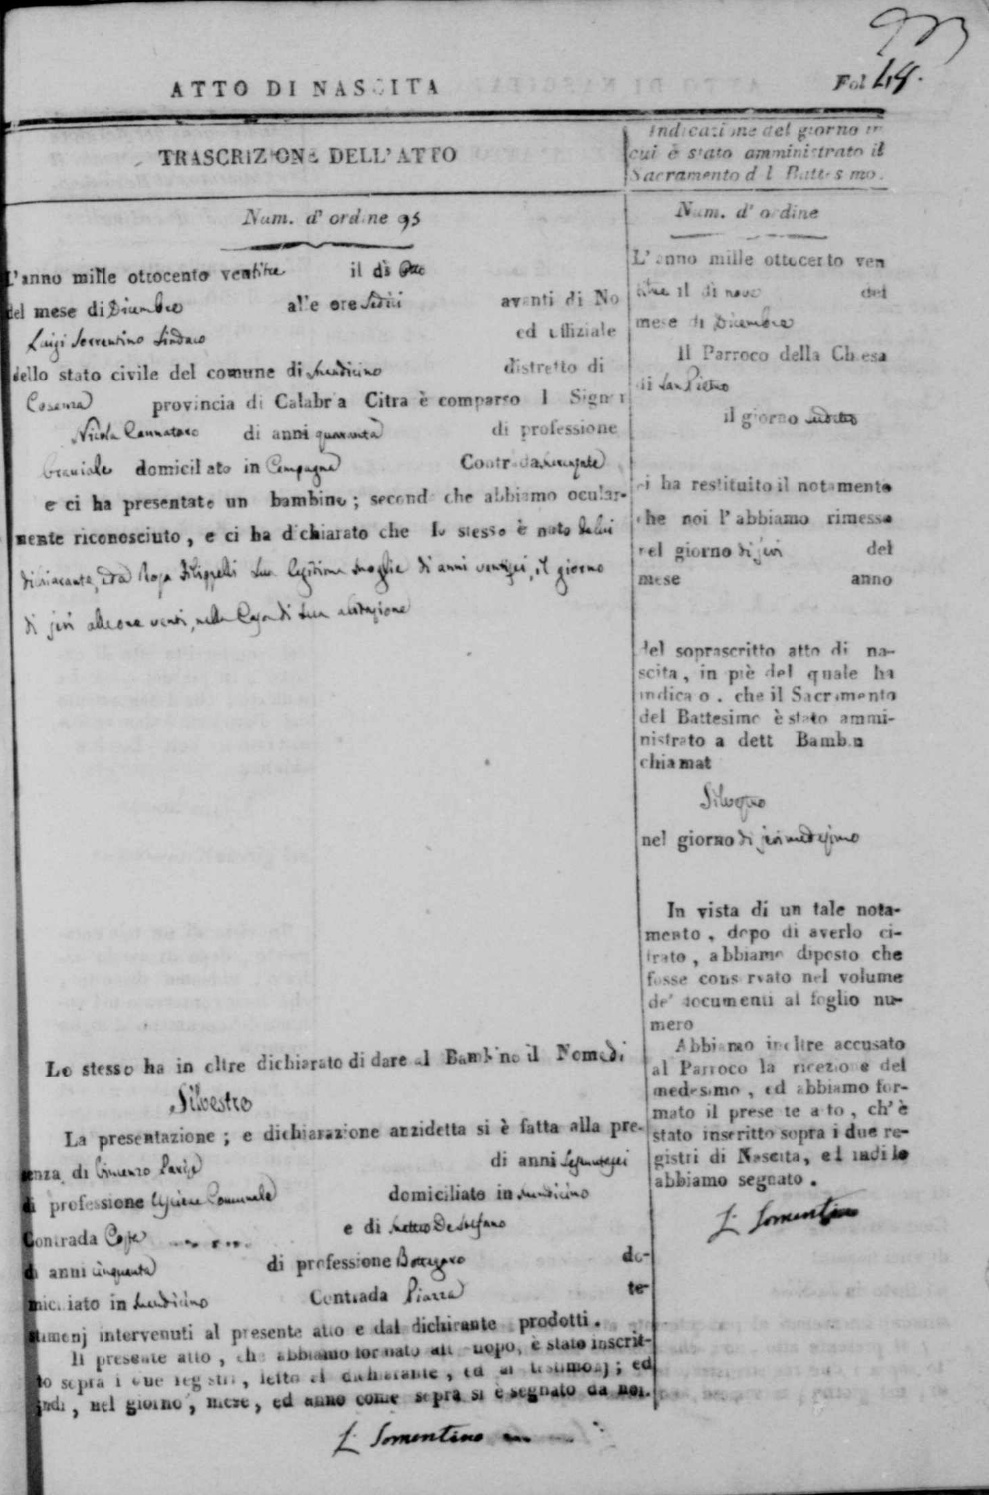 ATTO DI NASCITA
Fol 48.
TRASCRIZIONE DELL'ATTO
Num. d' ordine 95
L'anno mille ottocento ventitre il dì Otto
del mese di Dicembre alle ore Sedici avanti di No
Luigi Sorrentino Sindaco ed uffiziale
dello stato civile del comune di Mendicino distretto di
Cosenza provincia di Calabria Citra è comparso l Signor
Nicola Cannataro di anni quaranta di professione
braciale domicilato in Campagna Contrada
e ci ha presentate un bambino; second che abbiamo ocular-
mente riconosciuto, e ci ha dichiarato che lo stesso è nato da lui
dichiarante, e da Rosa Filippelli sua legitima moglie di anni ventisei, il giorno
di jeri alle ore venti, nella Casa di sua abitazione
Lo stesso ha in oltre dichiarato di dare al Bambino il Nome di
Silvestro
La presentazione; e dichiarazione anzidetta si è fatta alla pre-
senza di Vincenzo Parise di anni
di professione Usciere Comunale domiciliato in Mendicino
Contrada e di Matteo De Stefano
di anni cinquanta di professione do-
miciliato in Mendicino Contrada Piazza te-
stimonj intervenuti al presente atto e dal dichirante prodotti.
Il presente atto, che abbiamo formato all' uopo, è stato inscrit-
to sopra i due registri, letto al dichiarante, ed ai testimonj; ed
indi, nel giorno, mese, ed anno come sopra si è segnato da noi.
L. Sorrentino
Indicazione del giorno in
cui è stato amministrato il
Sacramento del Battesimo.
Num. d' ordine
L'anno mille ottocento ven
titre il dì nove del
mese di Dicembre
Il Parroco della Chiesa
di San Pietro
il giorno sudetto
ci ha restituito il notamento
che noi l'abbiamo rimesso
nel giorno di jeri del
mese anno
del soprascritto atto di na-
scita, in piè del quale ha
indicato, che il Sacramento
del Battesimo è stato ammi-
nistrato a dett Bambin
chiamat
Silvestro
nel giorno di jeri medesimo
In vista di un tale nota-
mento, dopo di averlo ci-
frato, abbiamo disposto che
fosse conservato nel volume
de' documenti al foglio nu-
mero
Abbiamo inoltre accusato
al Parroco la ricezione del
medesimo, ed abbiamo for-
mato il presente atto, ch'è
stato inscritto sopra i due re-
gistri di Nascita, ed indi lo
abbiamo segnato.
L. Sorrentino